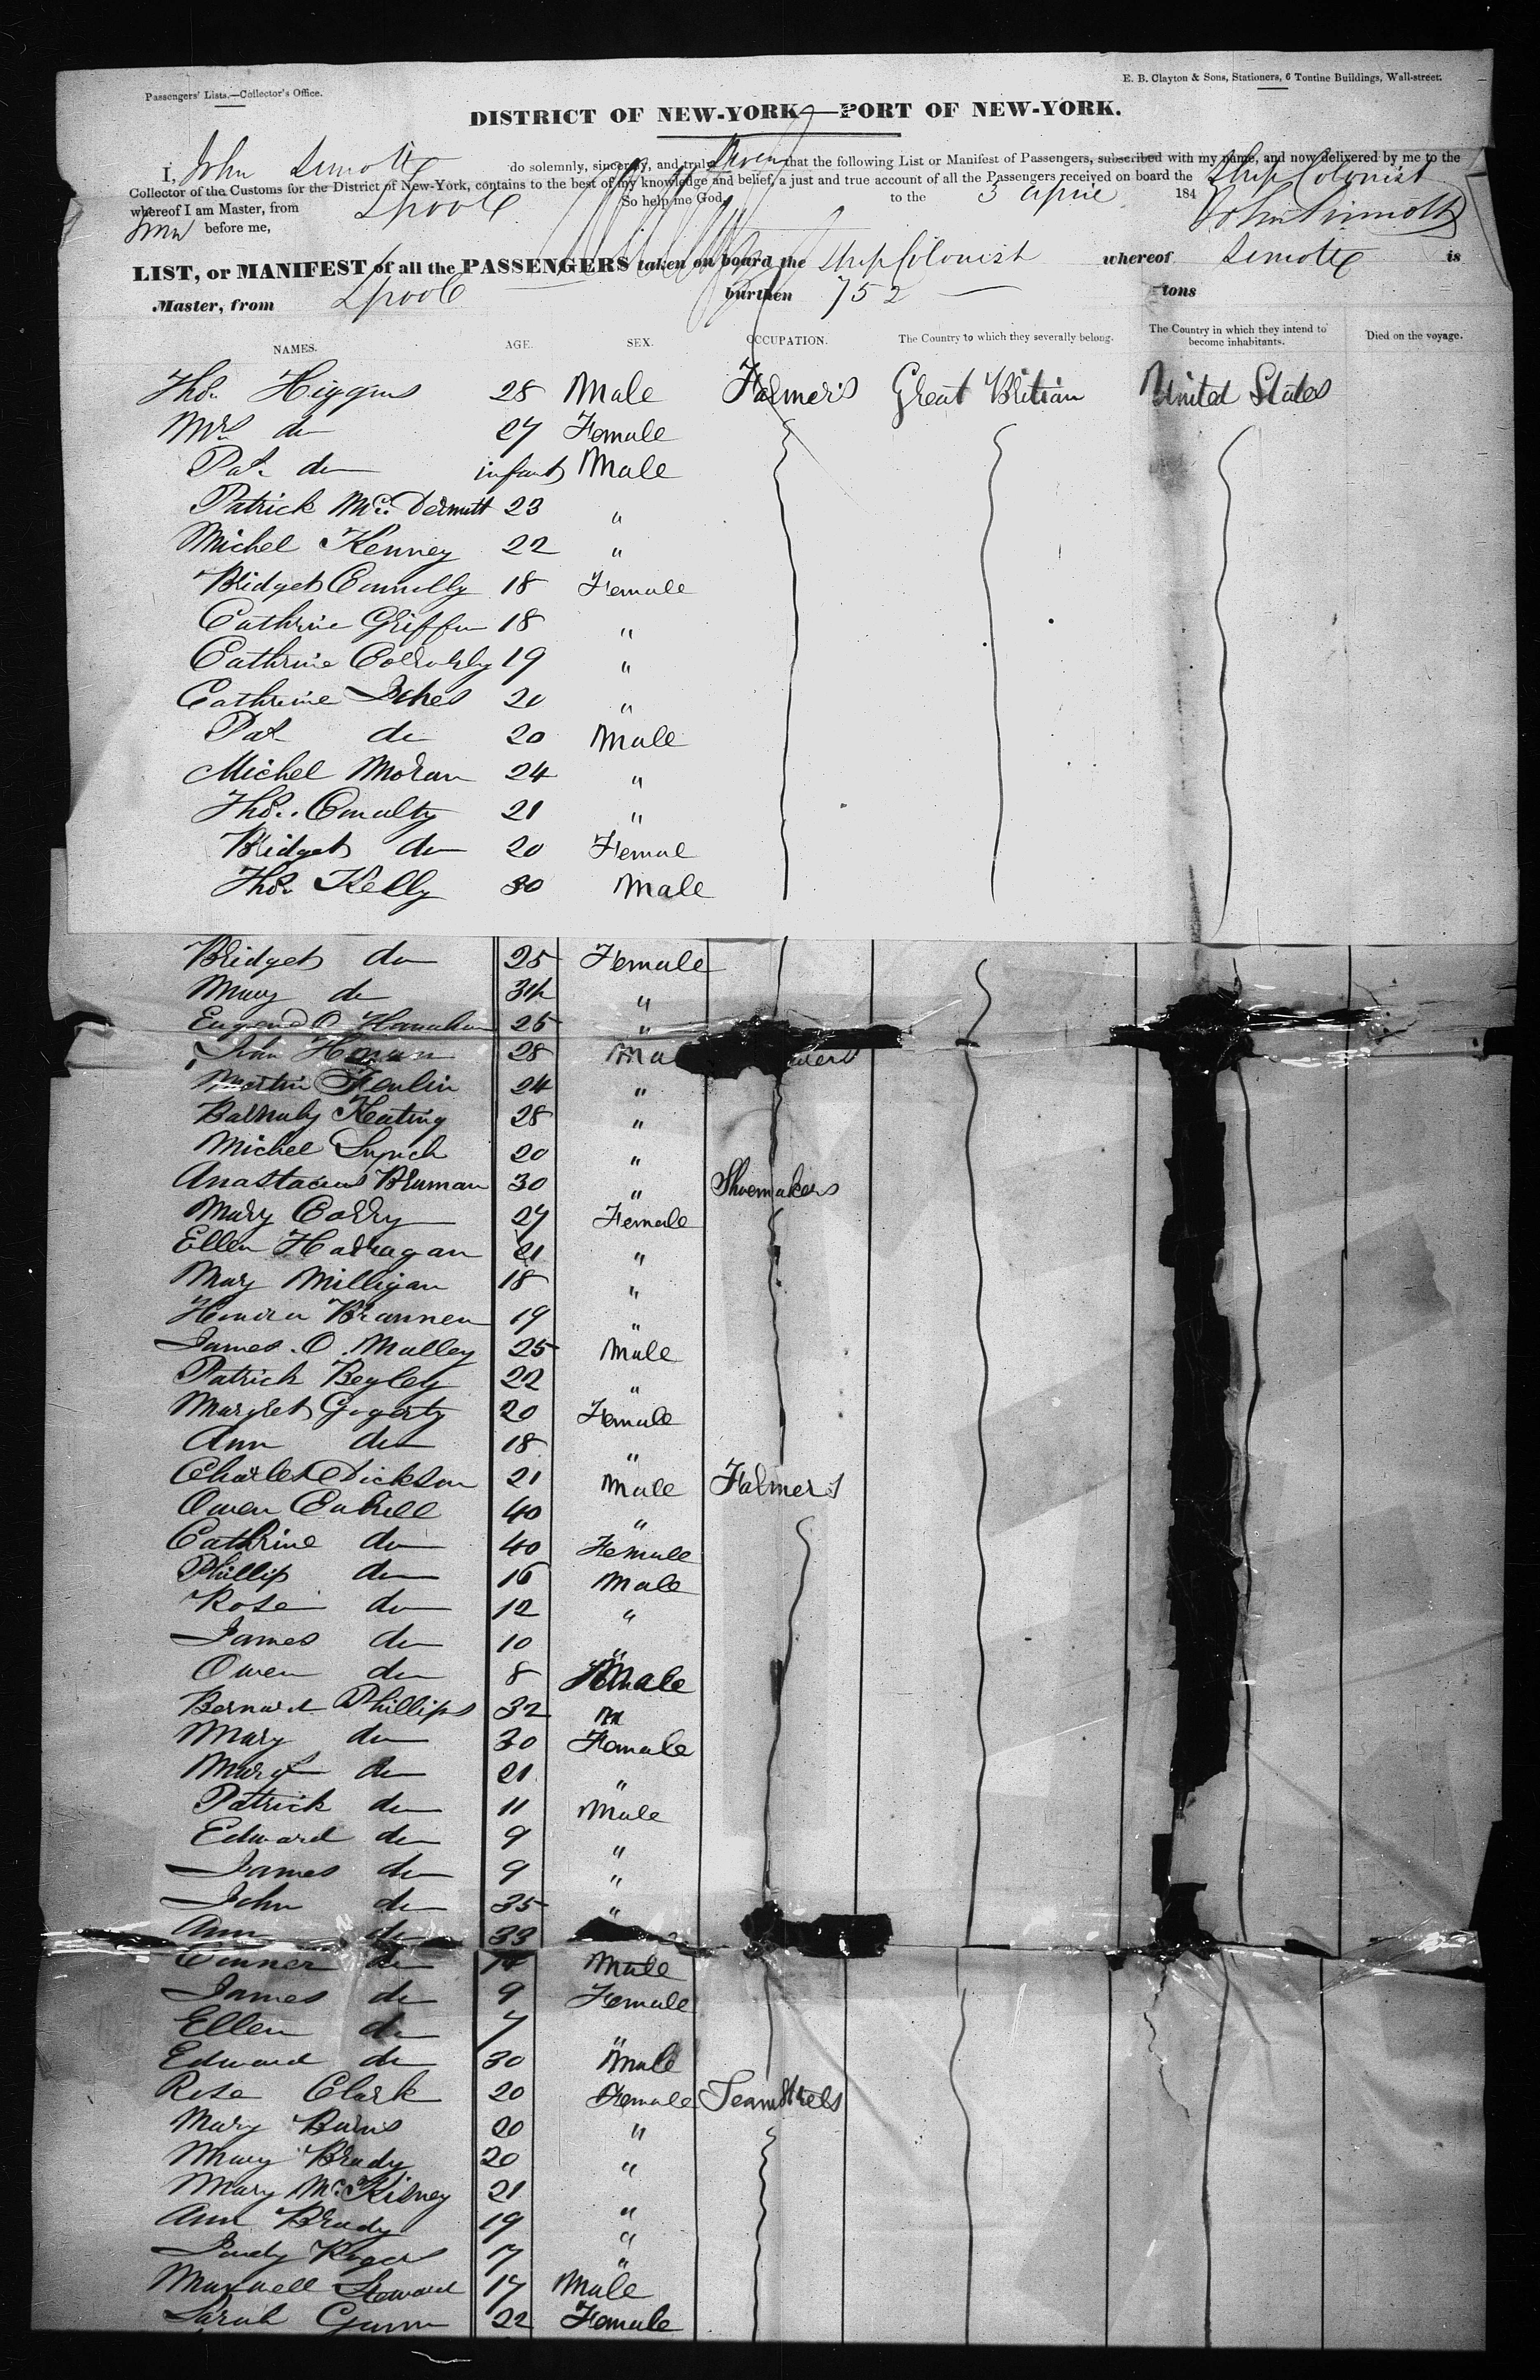 Passengers' Lists.—Collector's Office.
E. B. Clayton & Sons, Stationers, 6 Tontine Buildings, Wall-street.
DISTRICT OF NEW-YORK—PORT OF NEW-YORK.
I, John do solemnly, sincerely, and truly swear that the following List or Manifest of Passengers, subscribed with my name, and now delivered by me to the
Collector of the Customs for the District of New-York, contains to the best of my knowledge and belief, a just and true account of all the Passengers received on board the Ship Colonist
whereof I am Master, from Lpool So help me God. to the 3 April 184
before me, John
LIST, or MANIFEST of all the PASSENGERS taken on board the Ship Colonist whereof is
Master, from Lpool burthen 752 tons
NAMES. AGE. SEX. OCCUPATION. The Country to which they severally belong. The Country in which they intend to become inhabitants. Died on the voyage.
Thos. Higgins 28 Male Farmers Great Britian United States
Mrs do 27 Female
Pat do infant Male
Patrick Mc. Dermutt 23 "
Michel Kenney 22 "
Bridget Connolly 18 Female
Cathrine Griffin 18 "
Cathrine 19 "
Cathrine 20 "
Pat do 20 Male
Michel Moran 24 "
Thos. Conulty 21 "
Bridget do 20 Femal
Thos. Kelly 30 Male
Bridget do 25 Female
Mary do "
Eugene O Hanahan 26 "
John 28 Ma
Martin 24 "
Barnuby Keating 28 "
Michel Lynch 20 "
30 " Shoemakers
Mary Corry 27 Female
Ellen Harragan 21 "
Mary Milligan 18 "
Honora Brannen 19 "
James . O . Malley 25 Male
Patrick Begley 22 "
Margret Gogerty 20 Female
Ann do 18 "
Charles Dickson 21 Male Farmers
Owen 40 "
Cathrine do 40 Female
Phillip do 16 Male
Rose do 12 "
James do 10 "
Owen do 8 Male
Bernard Phillips 32
Mary do 30 Female
Mary do 21 "
Patrick do 11 Male
Edward do 9 "
James do 9 "
John do 35 "
Ann do 33
Conner do 14 Male
James do 9 Female
Ellen do 7 "
Edward do 30 Male
Rose Clark 20 Female Seamstress
Mary Burns 20 "
Mary Brady 20 "
Mary Mc. Kisney 21 "
Ann Brady 19 "
Judy Rogers 17 "
Maxwell Steward 17 Male
Sarah Gunn 22 Female